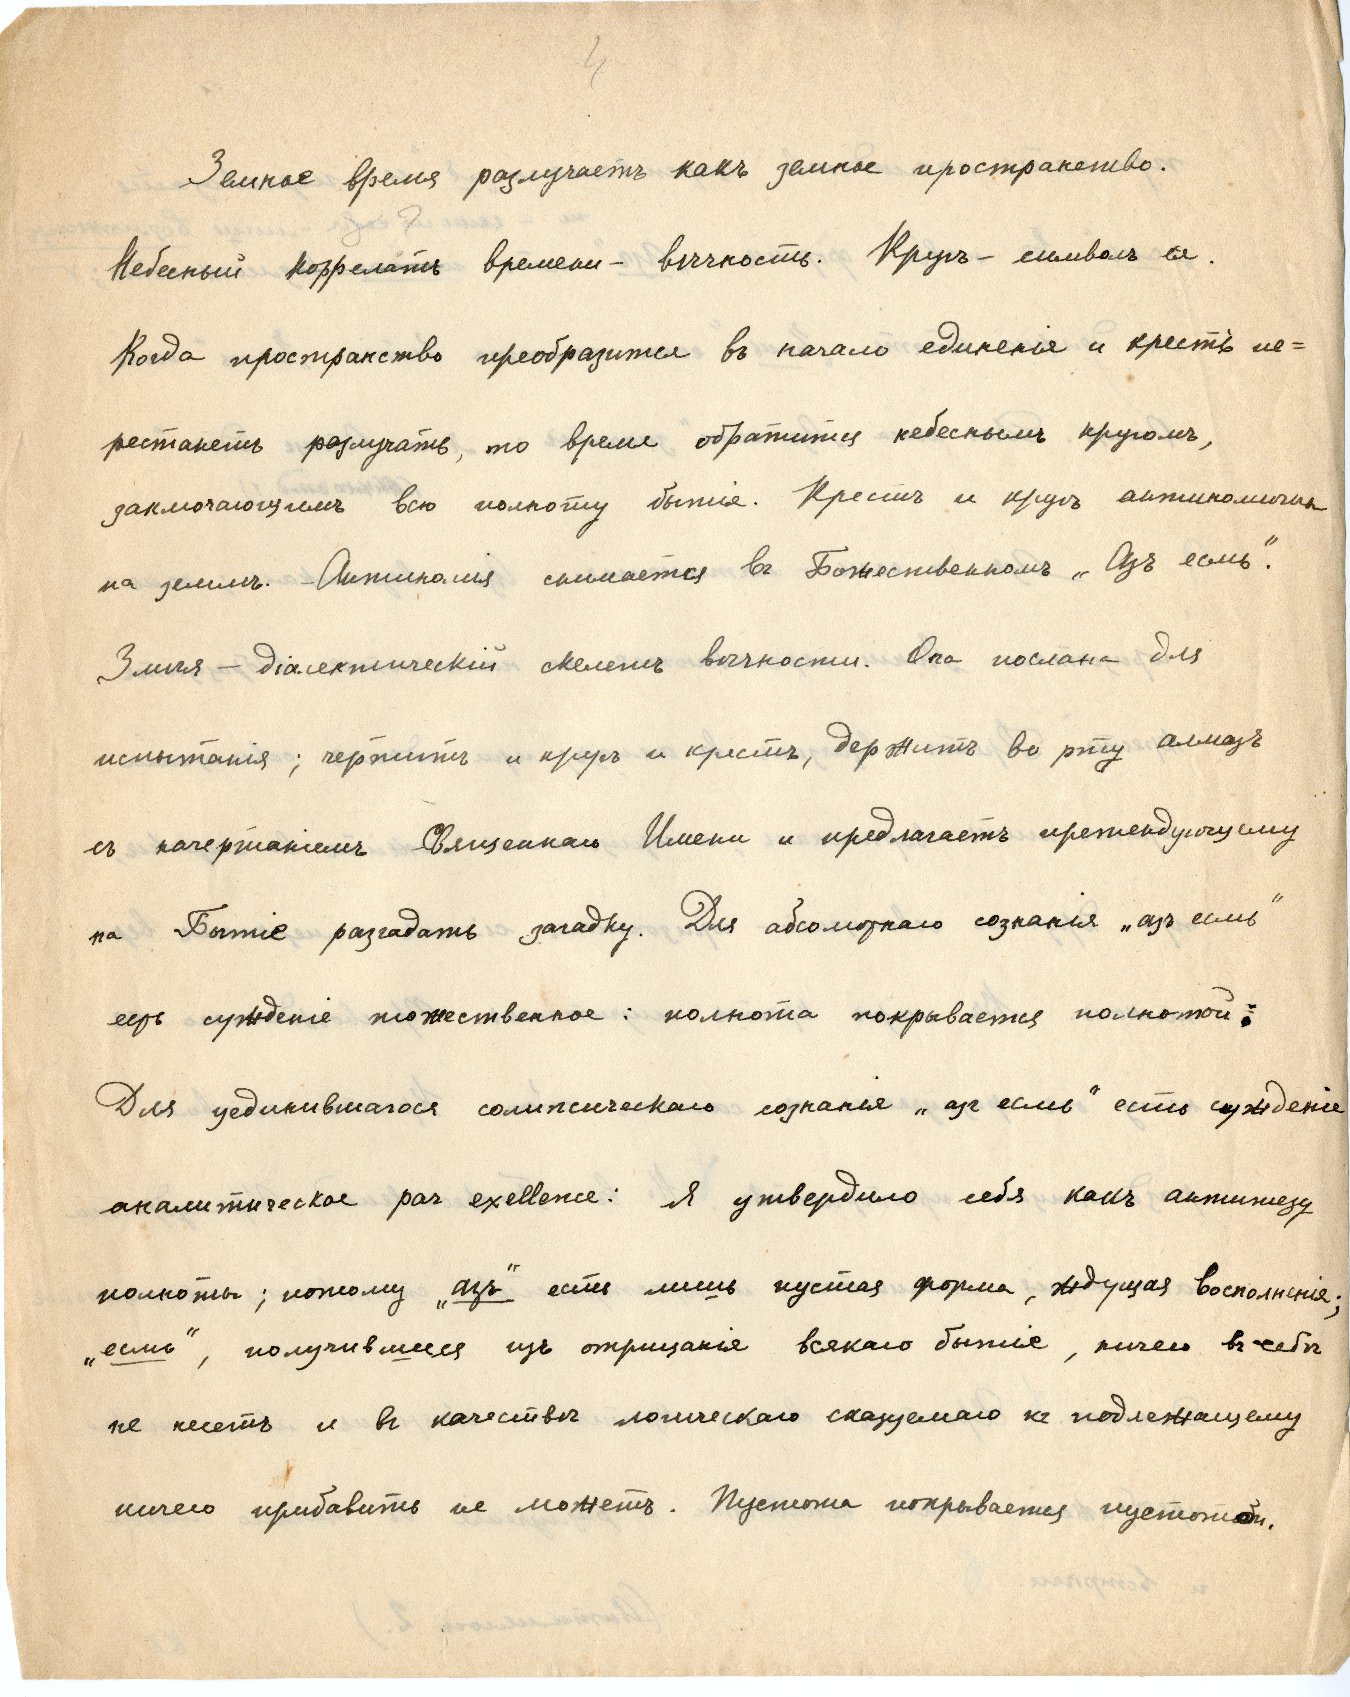 4
Земное время разлучаетъ какъ земное пространство.
Небесный коррелатъ времени – вѣчность. Кругъ – символъ ея.
Когда пространство преобразится въ начало единенія и крестъ пе=
рестанетъ разлучать, то время обратится небеснымъ кругомъ,
заключающимъ всю полноту бытія. Крестъ и кругъ антиномичны
на землѣ. Антиномія снимается въ Божественномъ „Азъ есмь“.
Змѣя – діалектическій скелетъ вѣчности. Она послана для
испытанія; чертитъ и кругъ и крестъ, держитъ во рту алмазъ
съ начертаніемъ Священнаго Имени и предлагаетъ претендующему
на Бытіе разгадать загадку. Для абсолютнаго сознанія „азъ есмь“
есть сужденіе тожественное: полнота покрывается полнотой:
Для уединившагося солипсическаго сознанія „азъ есмь“ есть сужденіе
аналитическое par exellence: Я утвердило себя какъ антитезу
полноты; потому „азъ“ есть лишь пустая форма, ждущая восполненія;
„есмь“, получившееся изъ отрицанія всякаго бытія, ничего въ себѣ
не несетъ и въ качествѣ логическаго сказуемаго къ подлежащему
ничего прибавить не можетъ. Пустота покрывается пустотой.